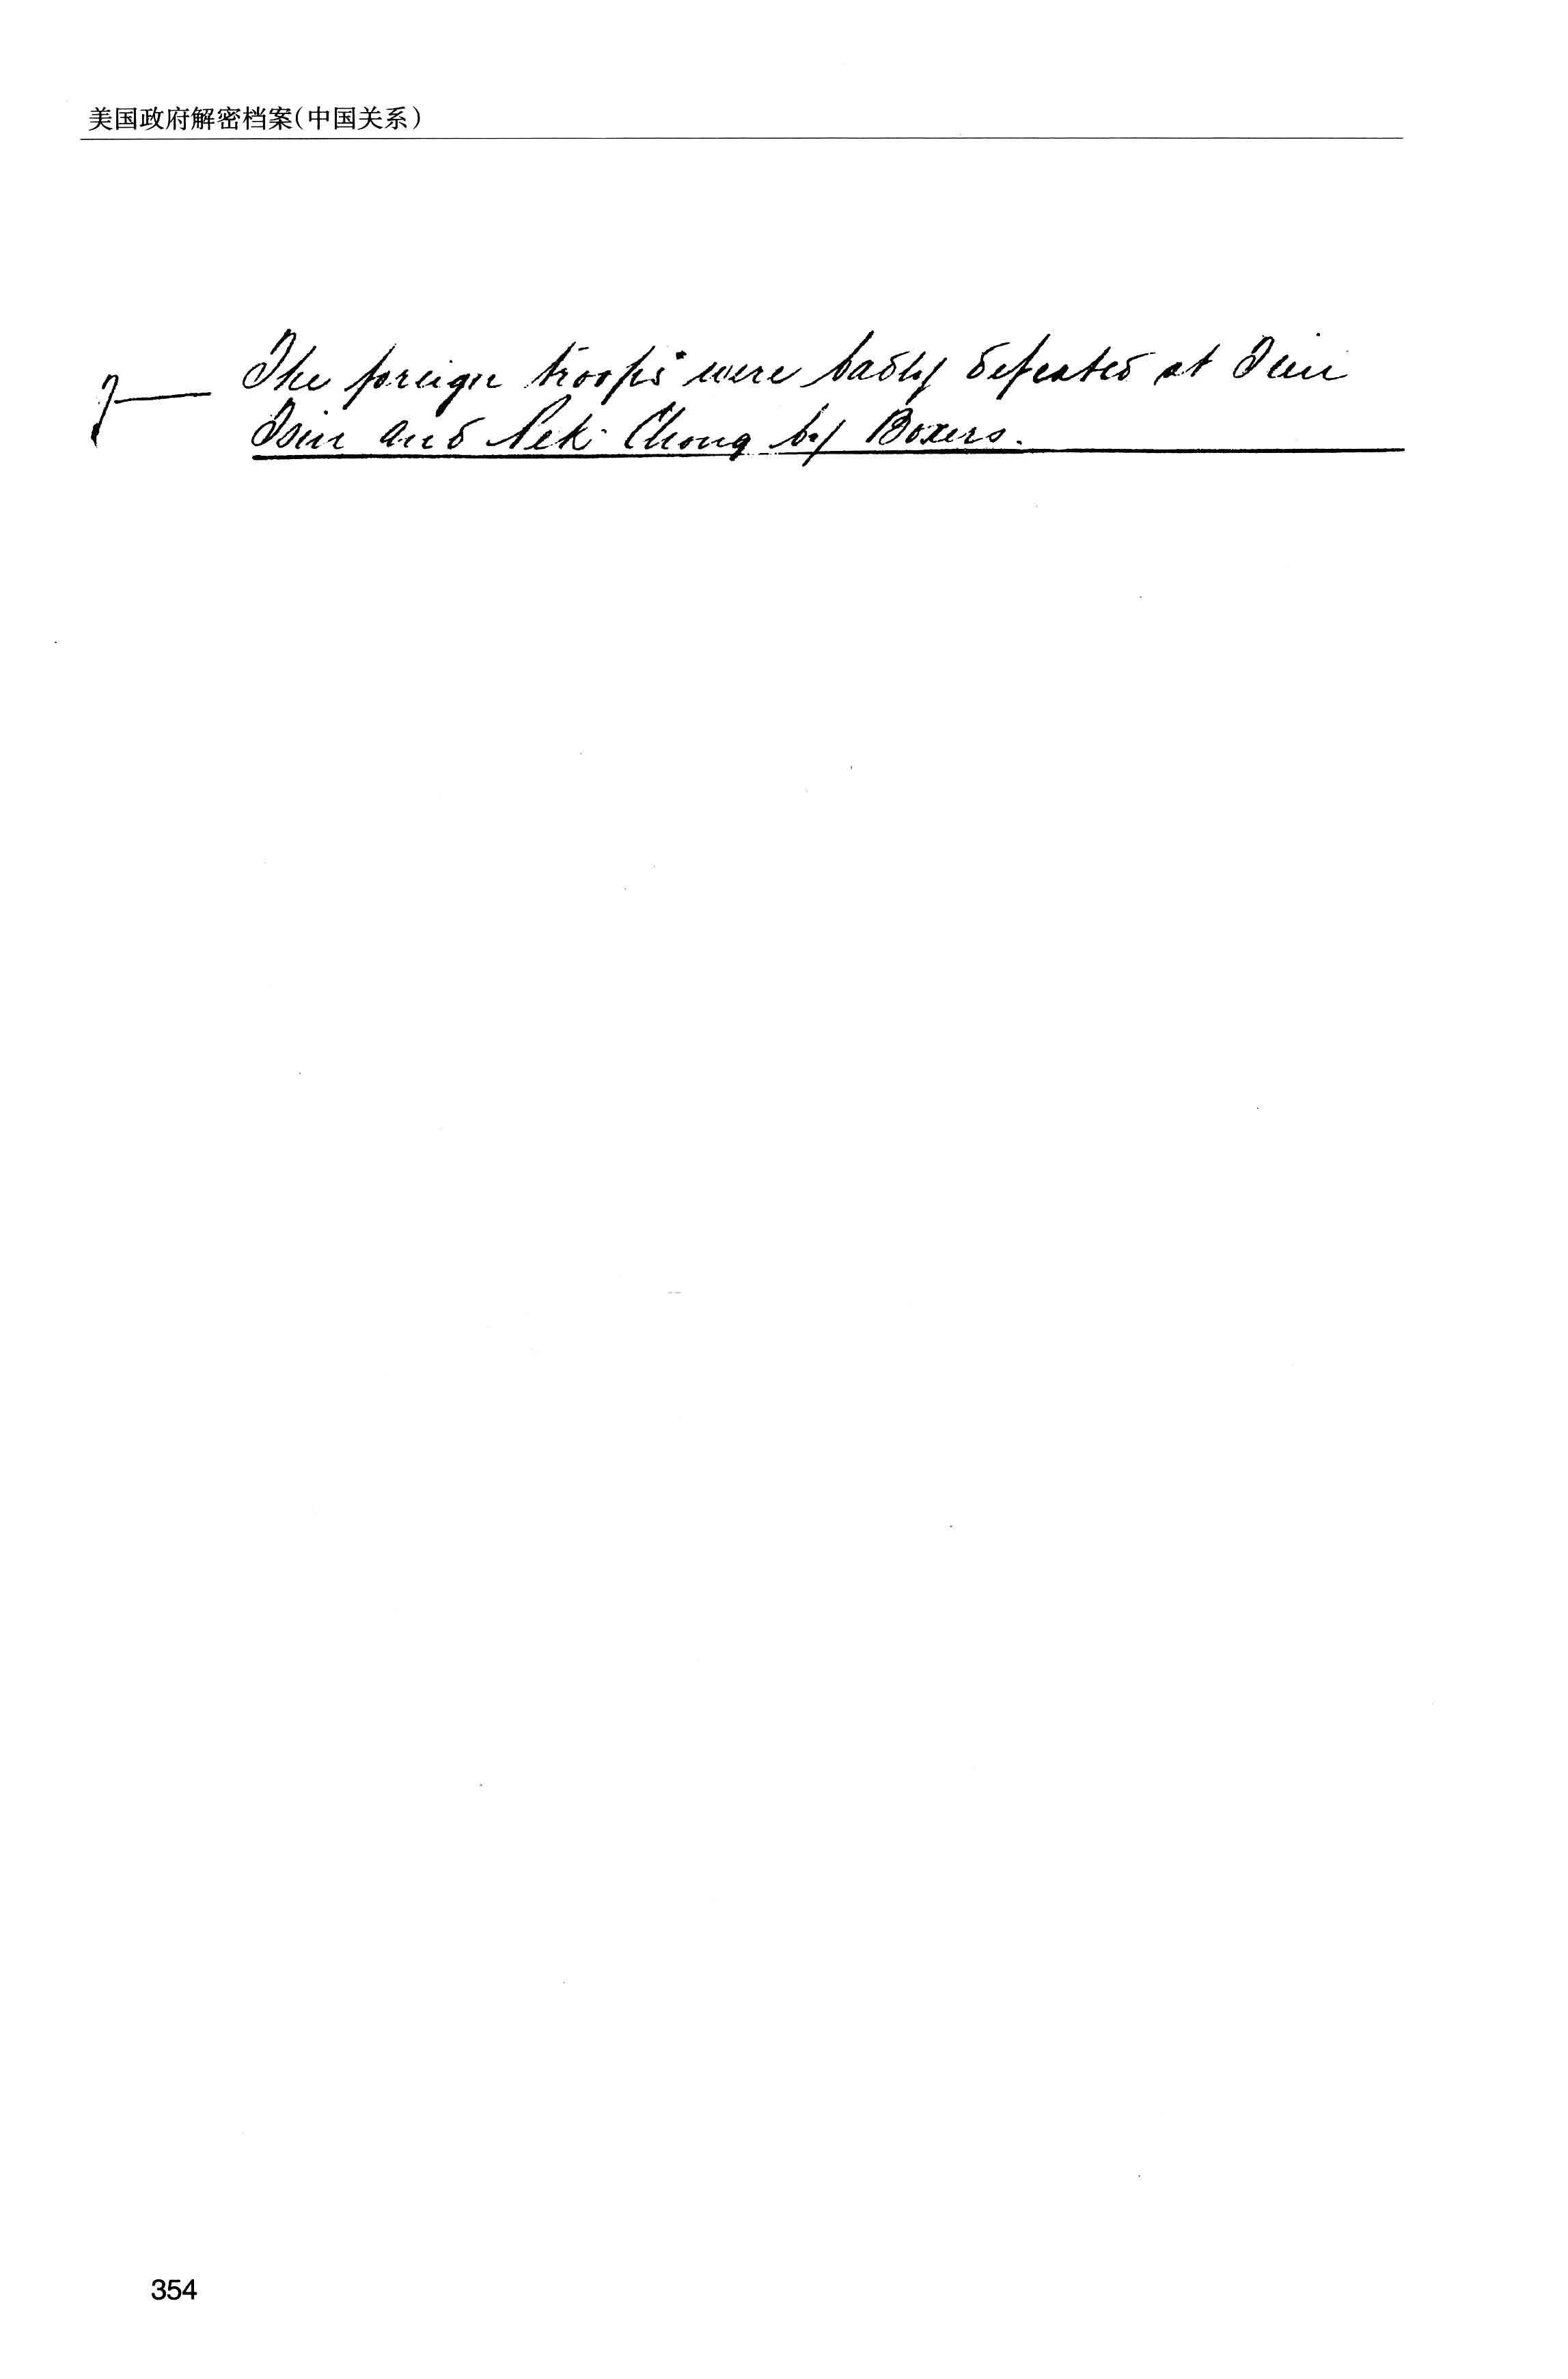 美国政府解密档案(中国关系)
7— The foreign troops were badly defeated at Tien
Tsin and Pek Chong by Boxers.
354